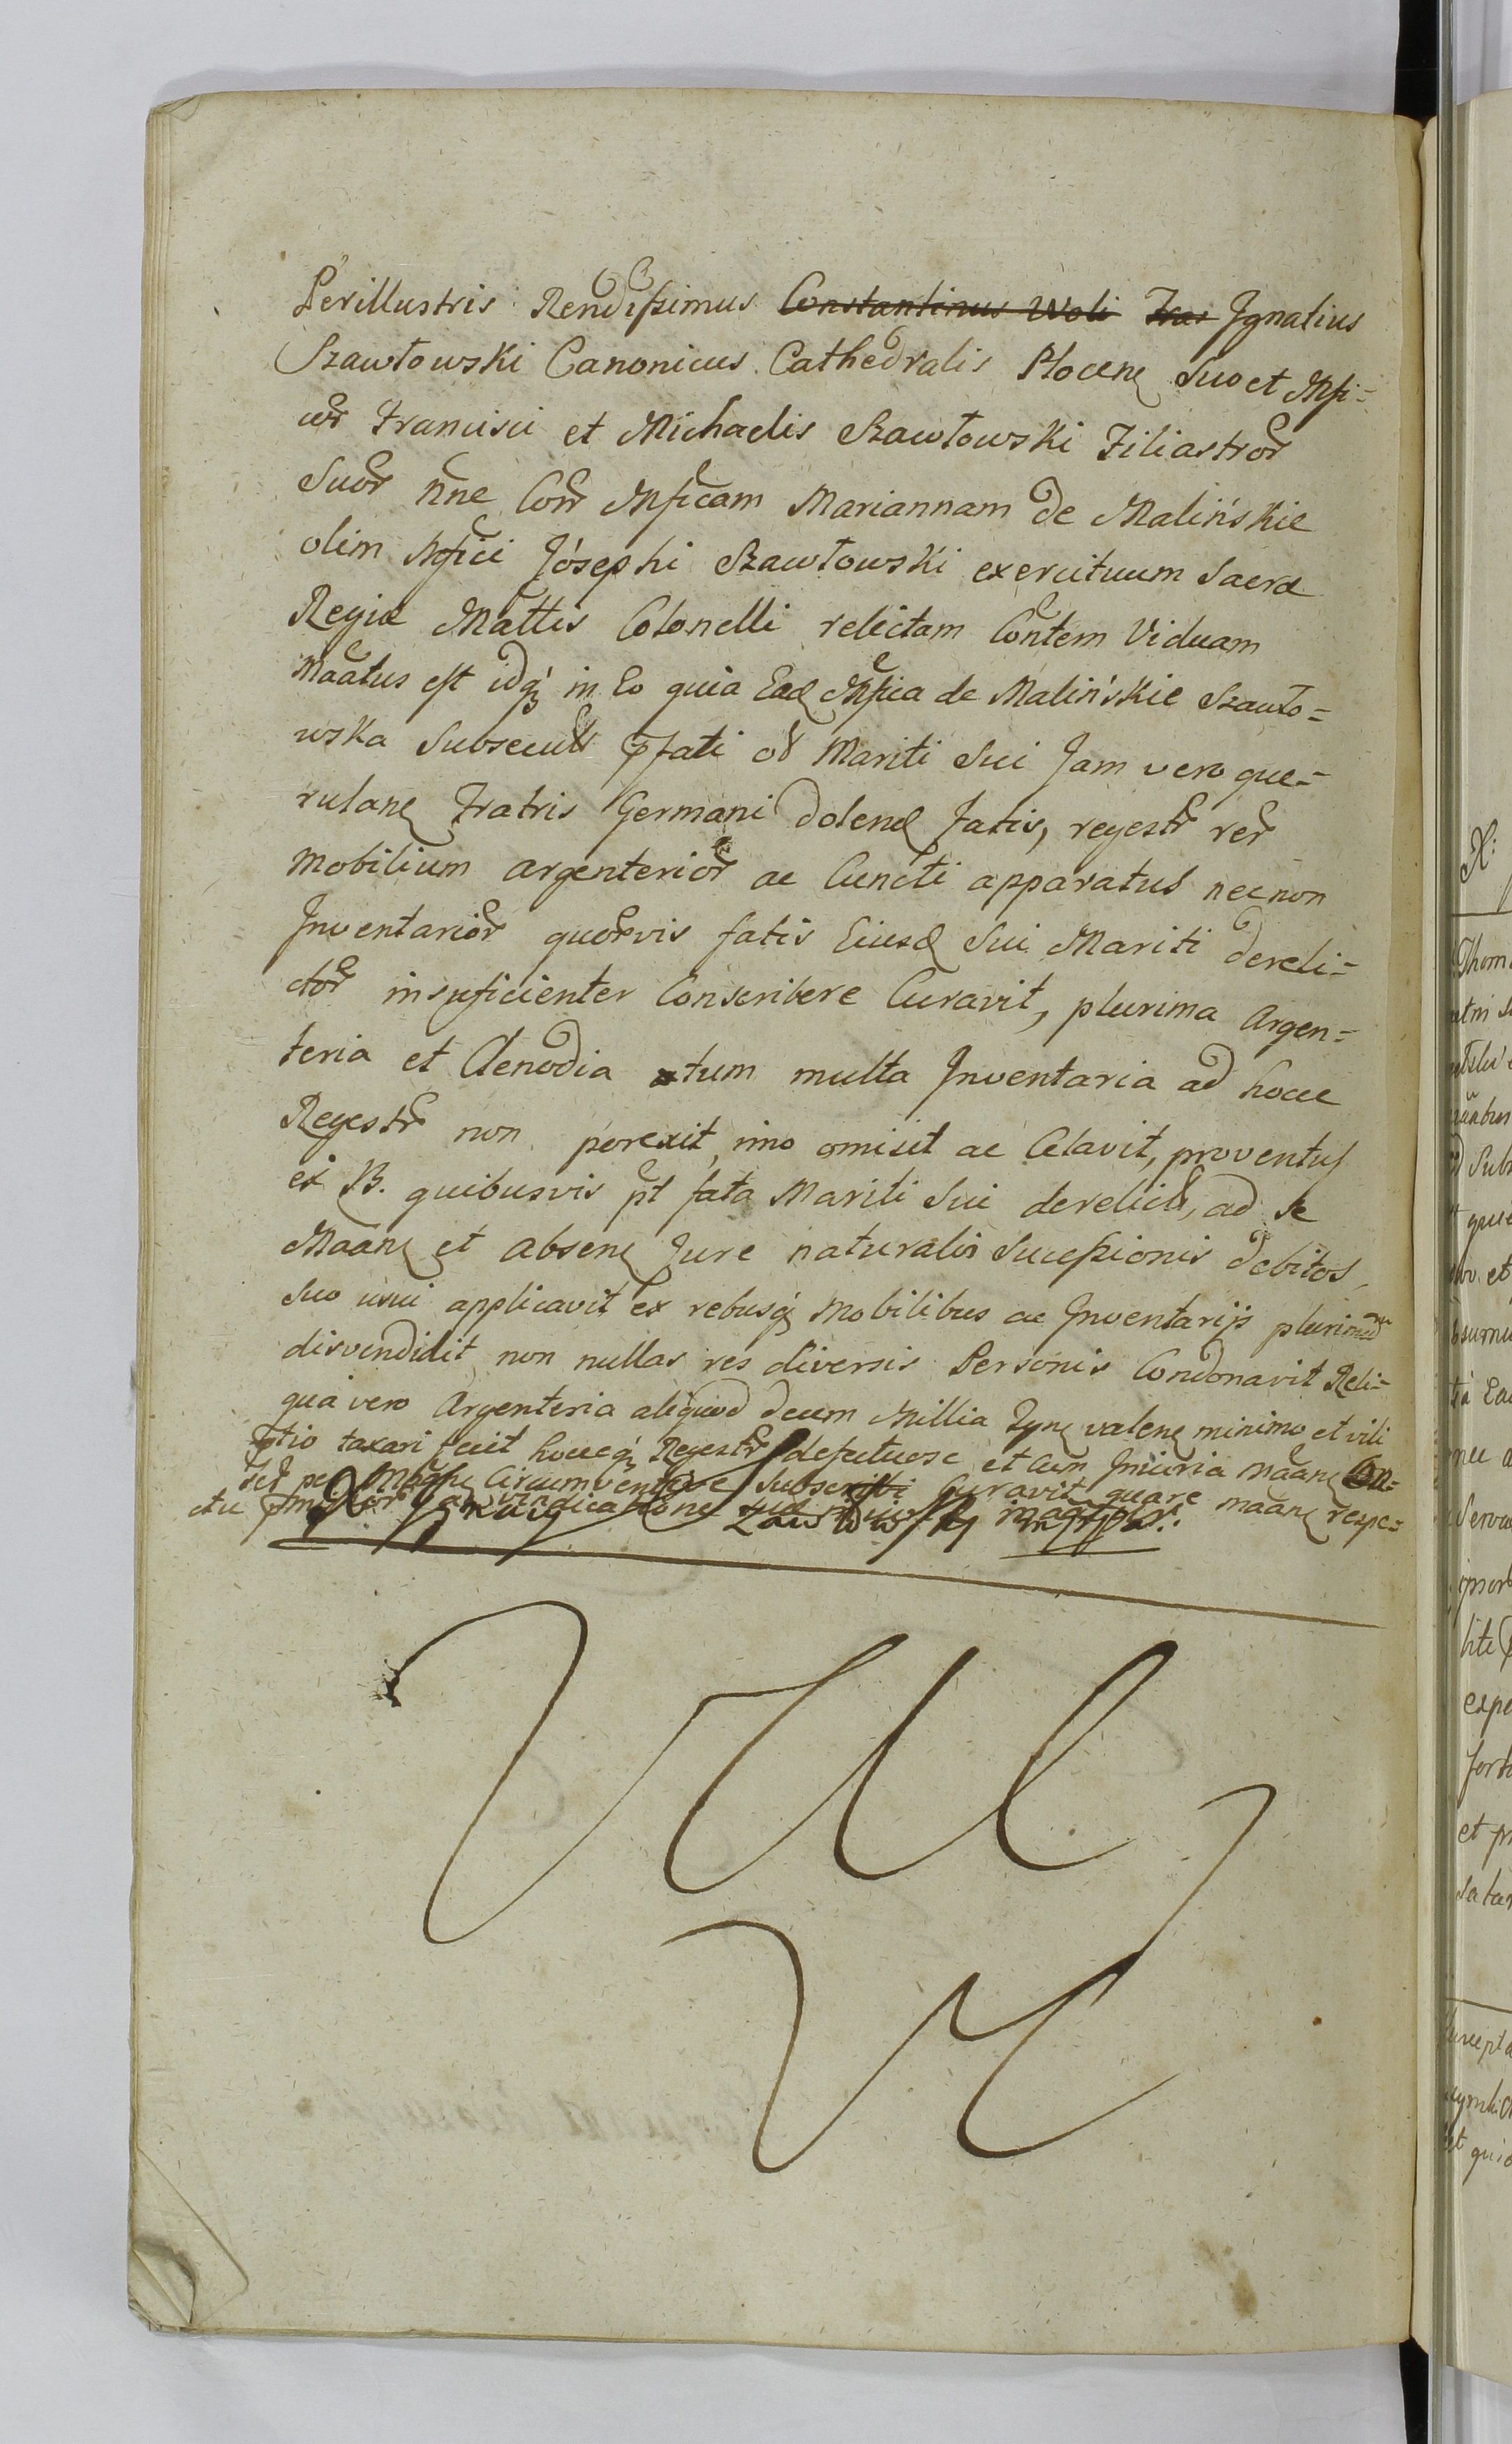 Perillustris Rendissimus Constantinus Woli Fras Ignatius
Szawłowski Canonicus Cathedralis Plocens Suo et Mfi=
cor Francisci et Michaelis Szawłowski Filiastror
Suor nne Corr Mficam Mariannam de Malińskie
olim Mfici Josephi Szawłowski exercituum Sacræ
Regiæ Mattis Colonelli relictam Contem Viduam
Maatus est idq in Eo quia Ead Mfica de Malińskie Szawło=
wska Subsecutis pfati ol Mariti Sui Jam vero que=
rulane Fratris Germani dolend fatis, regestr rer
Mobilium argenterior ac Cuncti apparatus necnon
Inventarior quorvis fatis Eiusd Sui Mariti dereli=
ctor insuficienter Conscribere Curavit, plurima Argen=
teria et Clenodia tum multa Inventaria ad hocce
Regestr non porexit, imo omisit ac Celavit, proventus
ex B. quibusvis pt fata Mariti Sui derelictis, ad se
Maane et absene Jure naturalis Sucessionis debitos,
Suo usui applicavit ex rebusq Mobilibus ac Inventarijs plurimum
disvendidit, non nullas res diversis Personis Condonavit Reli=
qua vero Argenteria aliquod decem Millia Zyne valene minimo et vili
ptio taxari fecit hocceq Regestr defectuose et Cum Iniuria Maane
Circumventive Subscribi Curavit quare Maane respe=
ctu pmissor vindicatione
X Ignacy Zawłowski mpp